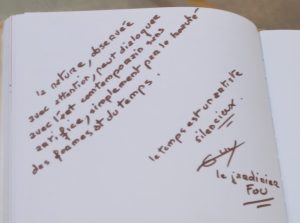 la nature, observée
avec attention, peut dialoguer
avec l'art contemporain sans
artifice, simplement par la beauté
des formes et du temps.
le temps est un artiste
silencieux.
le jardinier
FOU